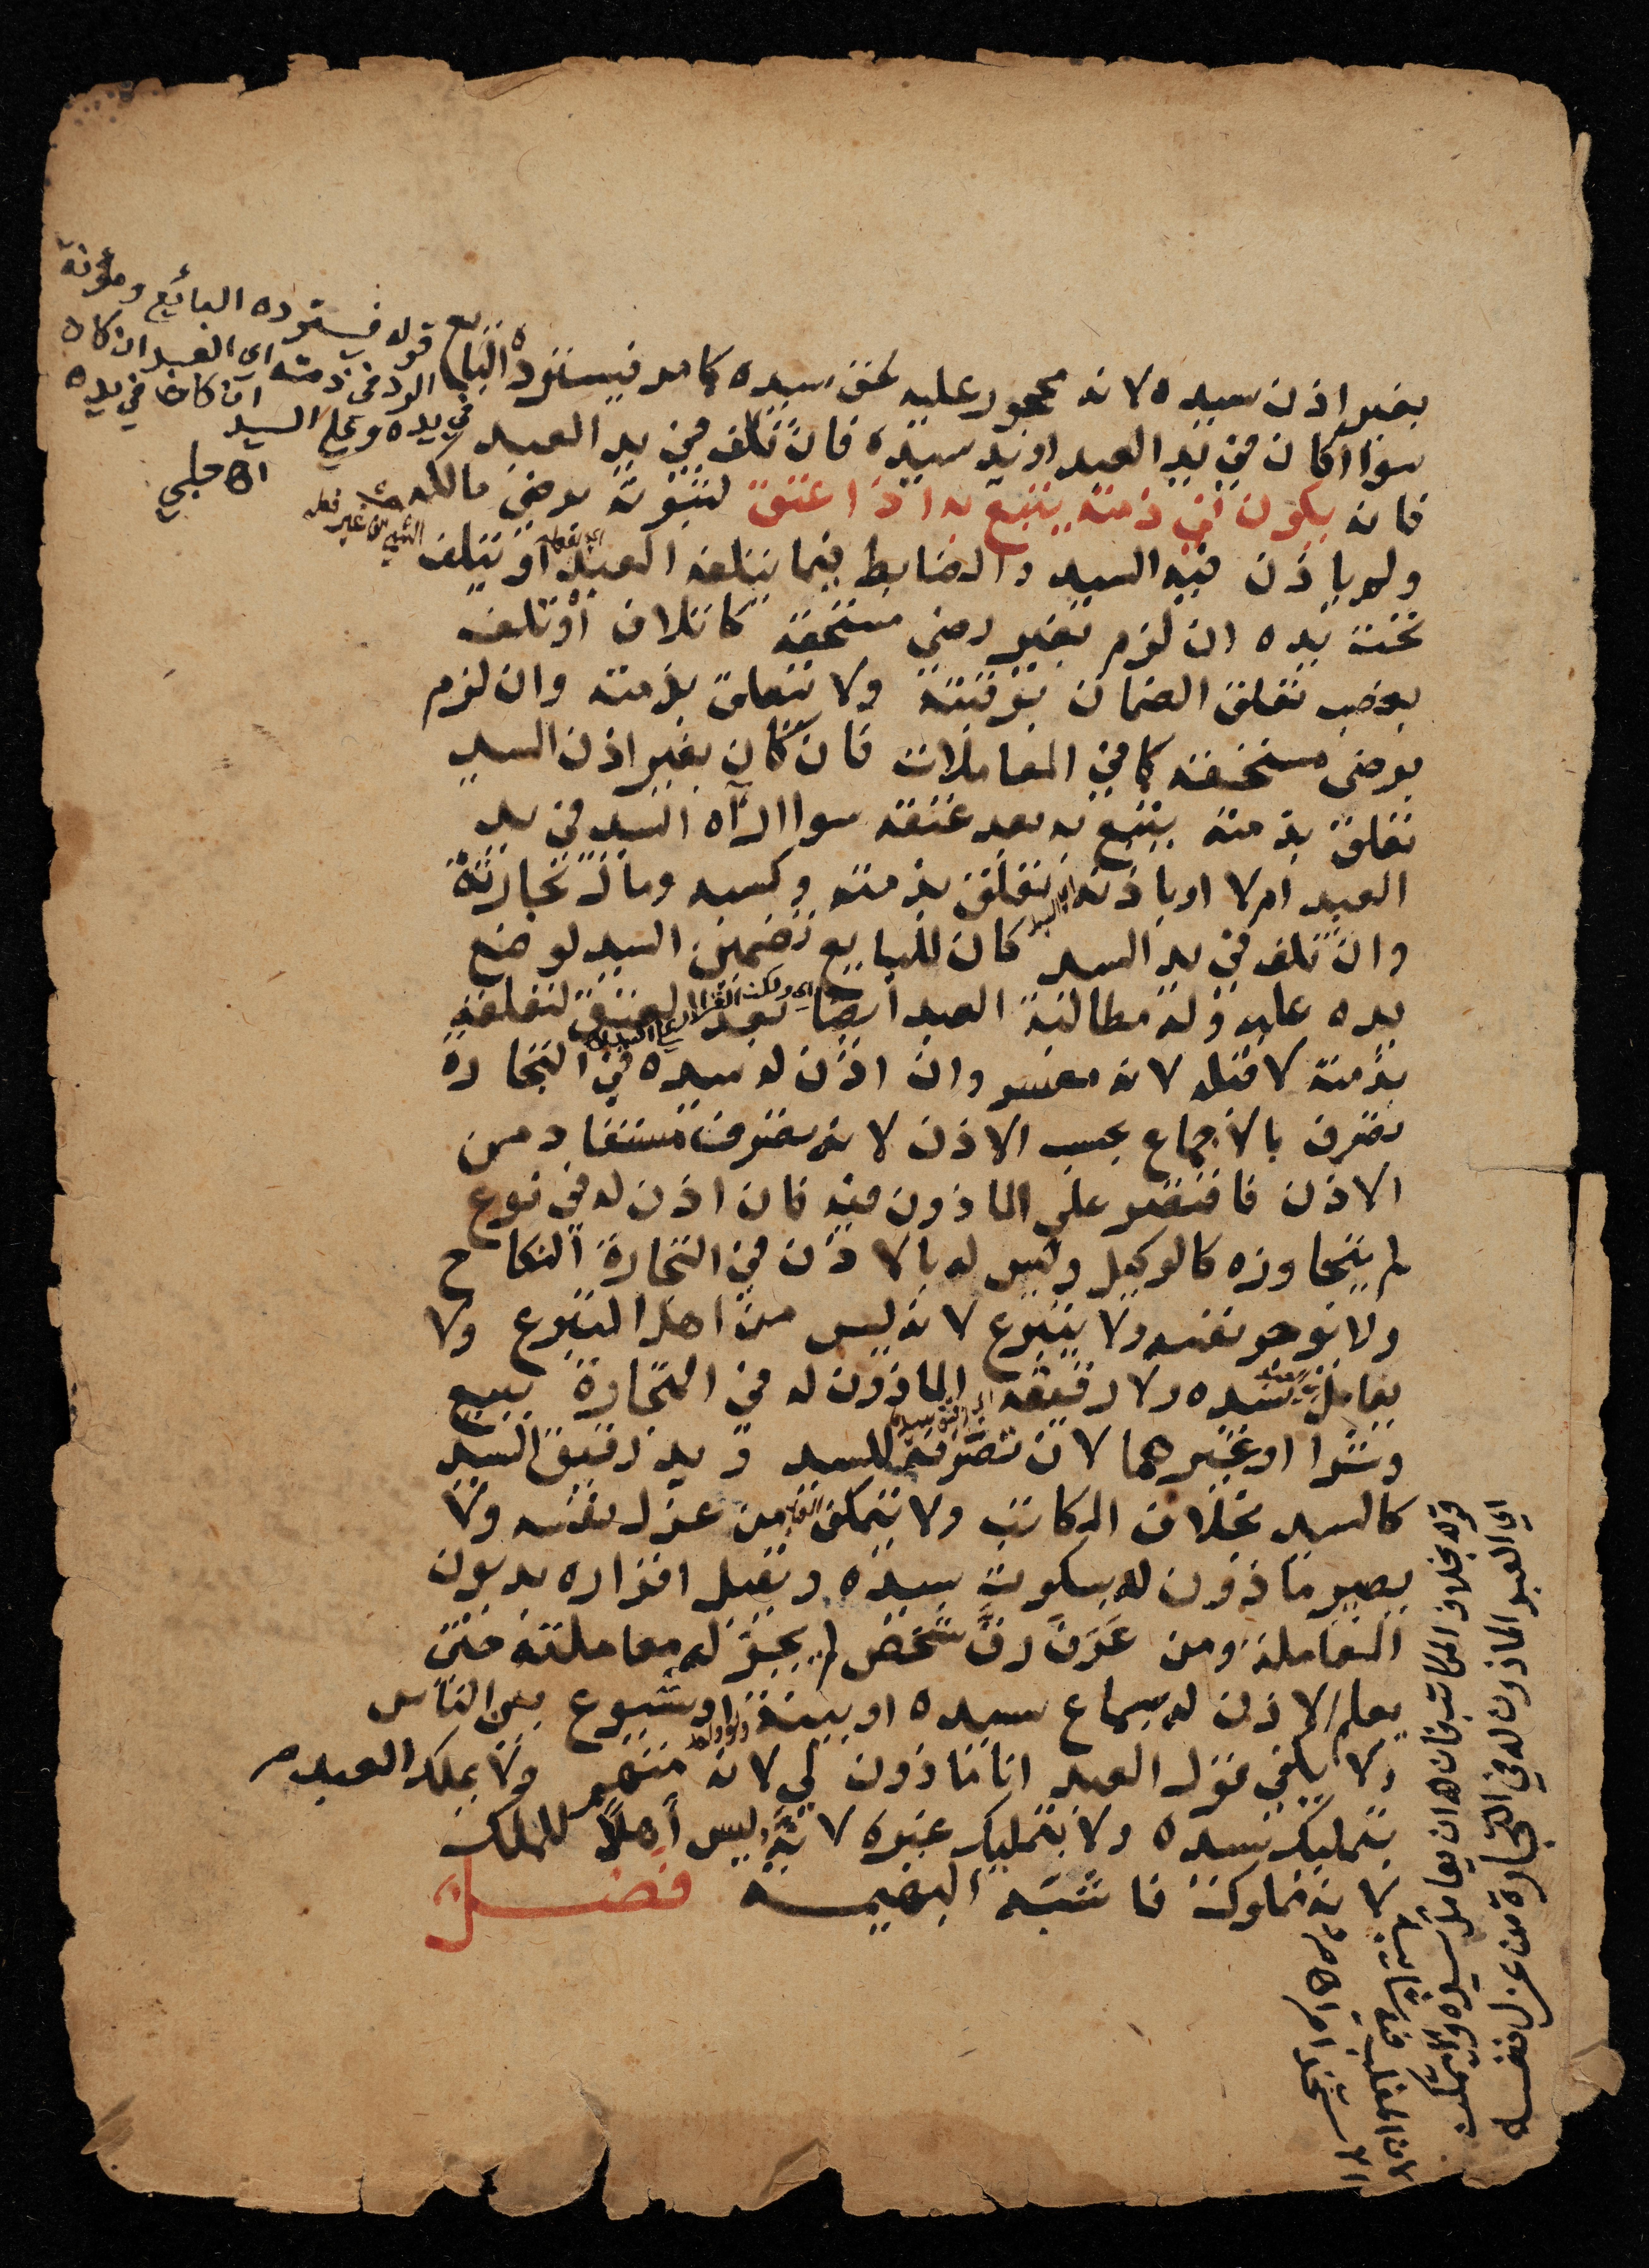 بغير اذن سيده لانه محجور عليه لحق سيده كما مر فيسترده البايع
سوا اكان في يد العبد او يد سيده فان تلف في يد العبد
فانه يكون في ذمته يتبع به اذا اعتق لثبوته برضي مالكه
ولم ياذن فيه السيد والضابط فيما يتلفه العبد او يتلف
تحت يده ان لزم بغير رضي مستحقه كاتلاف او تلف
بغصب تعلق الضمان برقبته ولا يتعلق بذمته وان لزم
برضي مستحقه كما في المعاملات فان كان بغير اذن السيد
تعلق بذمته يتبع به بعد عتقه سوا ارآه السيد في يد
العبد ام لا او باذنه تعلق بذمته وكسبه ومال تجارته
وان تلف في يد السيد كان للبايع تضمين السيد لوضع
يده عليه وله مطالبة العبد ايضا بعد العتق لتعلقه
بذمته لا قبله لانه معسر وان اذن له سيده في التجارة
تصرف بالاجماع بحسب الاذن لانه تصرف مستفاد من
الاذن فاقتصر على الماذون فيه فان اذن له في نوع
لم يتجاوزه كالوكيل وليس له بالاذن في التجارة النكاح
ولا يوجر نفسه ولا يتبرع لانه ليس من اهل التبرع ولا
يعامل سيده ولا رقيقه الماذون له في التجارة ببيع
وشرا او غيرهما لان تصرفه للسيد ويد رقيق السيد
كالسيد بخلاف المكاتب ولا يتمكن من عزل نفسه ولا
يصير ماذون له بسكوت سيده ويقبل اقراره بديون
المعاملة ومن عرف رق شخص لم يجز له معاملته حتى
يعلم الاذن له بسماع سيده او ببينة او شيوع بين الناس
ولا يكفي قول العبد انا ماذون لي لانه متهم ولا يملك العبد
بتمليك سيده ولا بتمليك غيره لانه ليس اهلا للملك
لانه مملوك فاشبه البهيمه فصل
قوله فيسترده البائع ومؤنة
الرد في ذمته اى العبد ان كان
في يده وعلى السيد ان كان في يده
اه حلبي
قوله بخلاف المكاتب فان له ان يعامل سيده ولا يتمكن
اي العبد الماذون له في التجارة من عزل نفسه